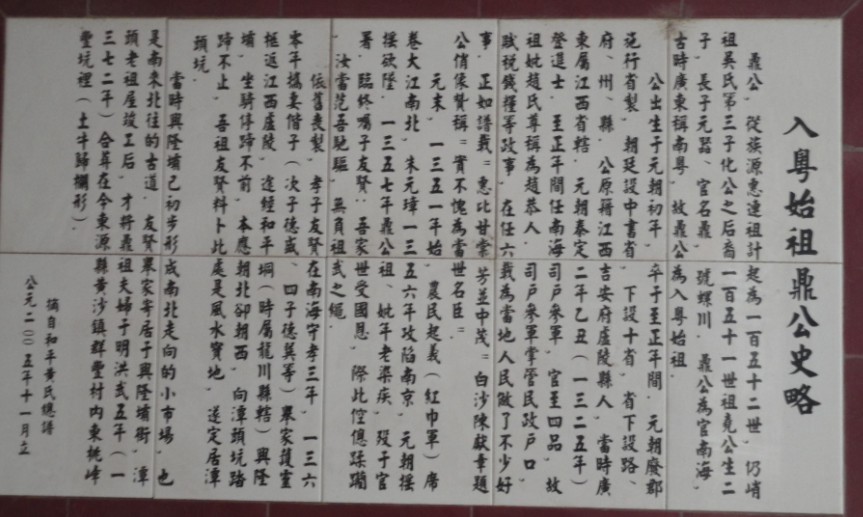 入粤始祖鼎公史略
鼎公，從族源惠連祖計起為一百五十二世，仍峭
祖吳氏第三子化公之后裔一百五十一世祖堯公生二
子，長子元器、官名鼎，號螺川．鼎公為官南海，
古時廣東稱南粤，故鼎公為入粤始祖．
公出生于元朝初年，卒于至正年間．元朝廢郡
施行省製，朝廷設中書省，下設十省，省下設路、
府、州、縣．公原籍江西吉安府盧陵縣人．當時廣
東屬江西省轄．元朝泰定二年乙丑（一三二五年）
登進士．至正年間任南海司户參軍，官至四品，故
祖妣趙氏尊稱為趙恭人．司户參軍掌管民政户口，
賦税錢糧等政事．在任六載為當地人民做了不少好
事．正如譜載＝惠比甘棠芳並中茂＝白沙陳獻章題
公俏像贊稱＝實不愧為當世名臣＝
元末，一三五一年始，農民起義（紅巾軍）席
卷大江南北，朱元璋一三五六年攻陷南京．元朝摇
摇欲墜．一三五七年鼎公祖、妣年老染疾，殁于官
署．臨終囑子友賢：吾家世受國恩，際此倥傯蹂躪
汝當范吾馳驅，無負祖武之繩．
依舊喪製，孝子友賢在南海守孝三年，一三六
零年攜妾偕子（次子德威、四子德巽等）舉家護靈
柩返江西盧陵．途經和平垌（時屬龍川縣轄）興隆
墳，坐騎停蹄不前．本應朝北卻朝西，向潭頭坑踏
蹄不止．吾祖友賢料卜此處是風水寶地，遂定居潭
頭坑．
當時興隆墳已初步形成南北走向的小市場，也
是南來北往的古道．友賢舉家寄居于興隆墳街，潭
頭老祖屋竣工后，才将鼎祖夫婦于明洪武五年（一
三七二年）合葬在今東源縣黄沙鎮群豐村内東桃峰
豐坑裡（土牛歸欄形）．
摘自和平黄氏總譜
公元二00五年十一月立